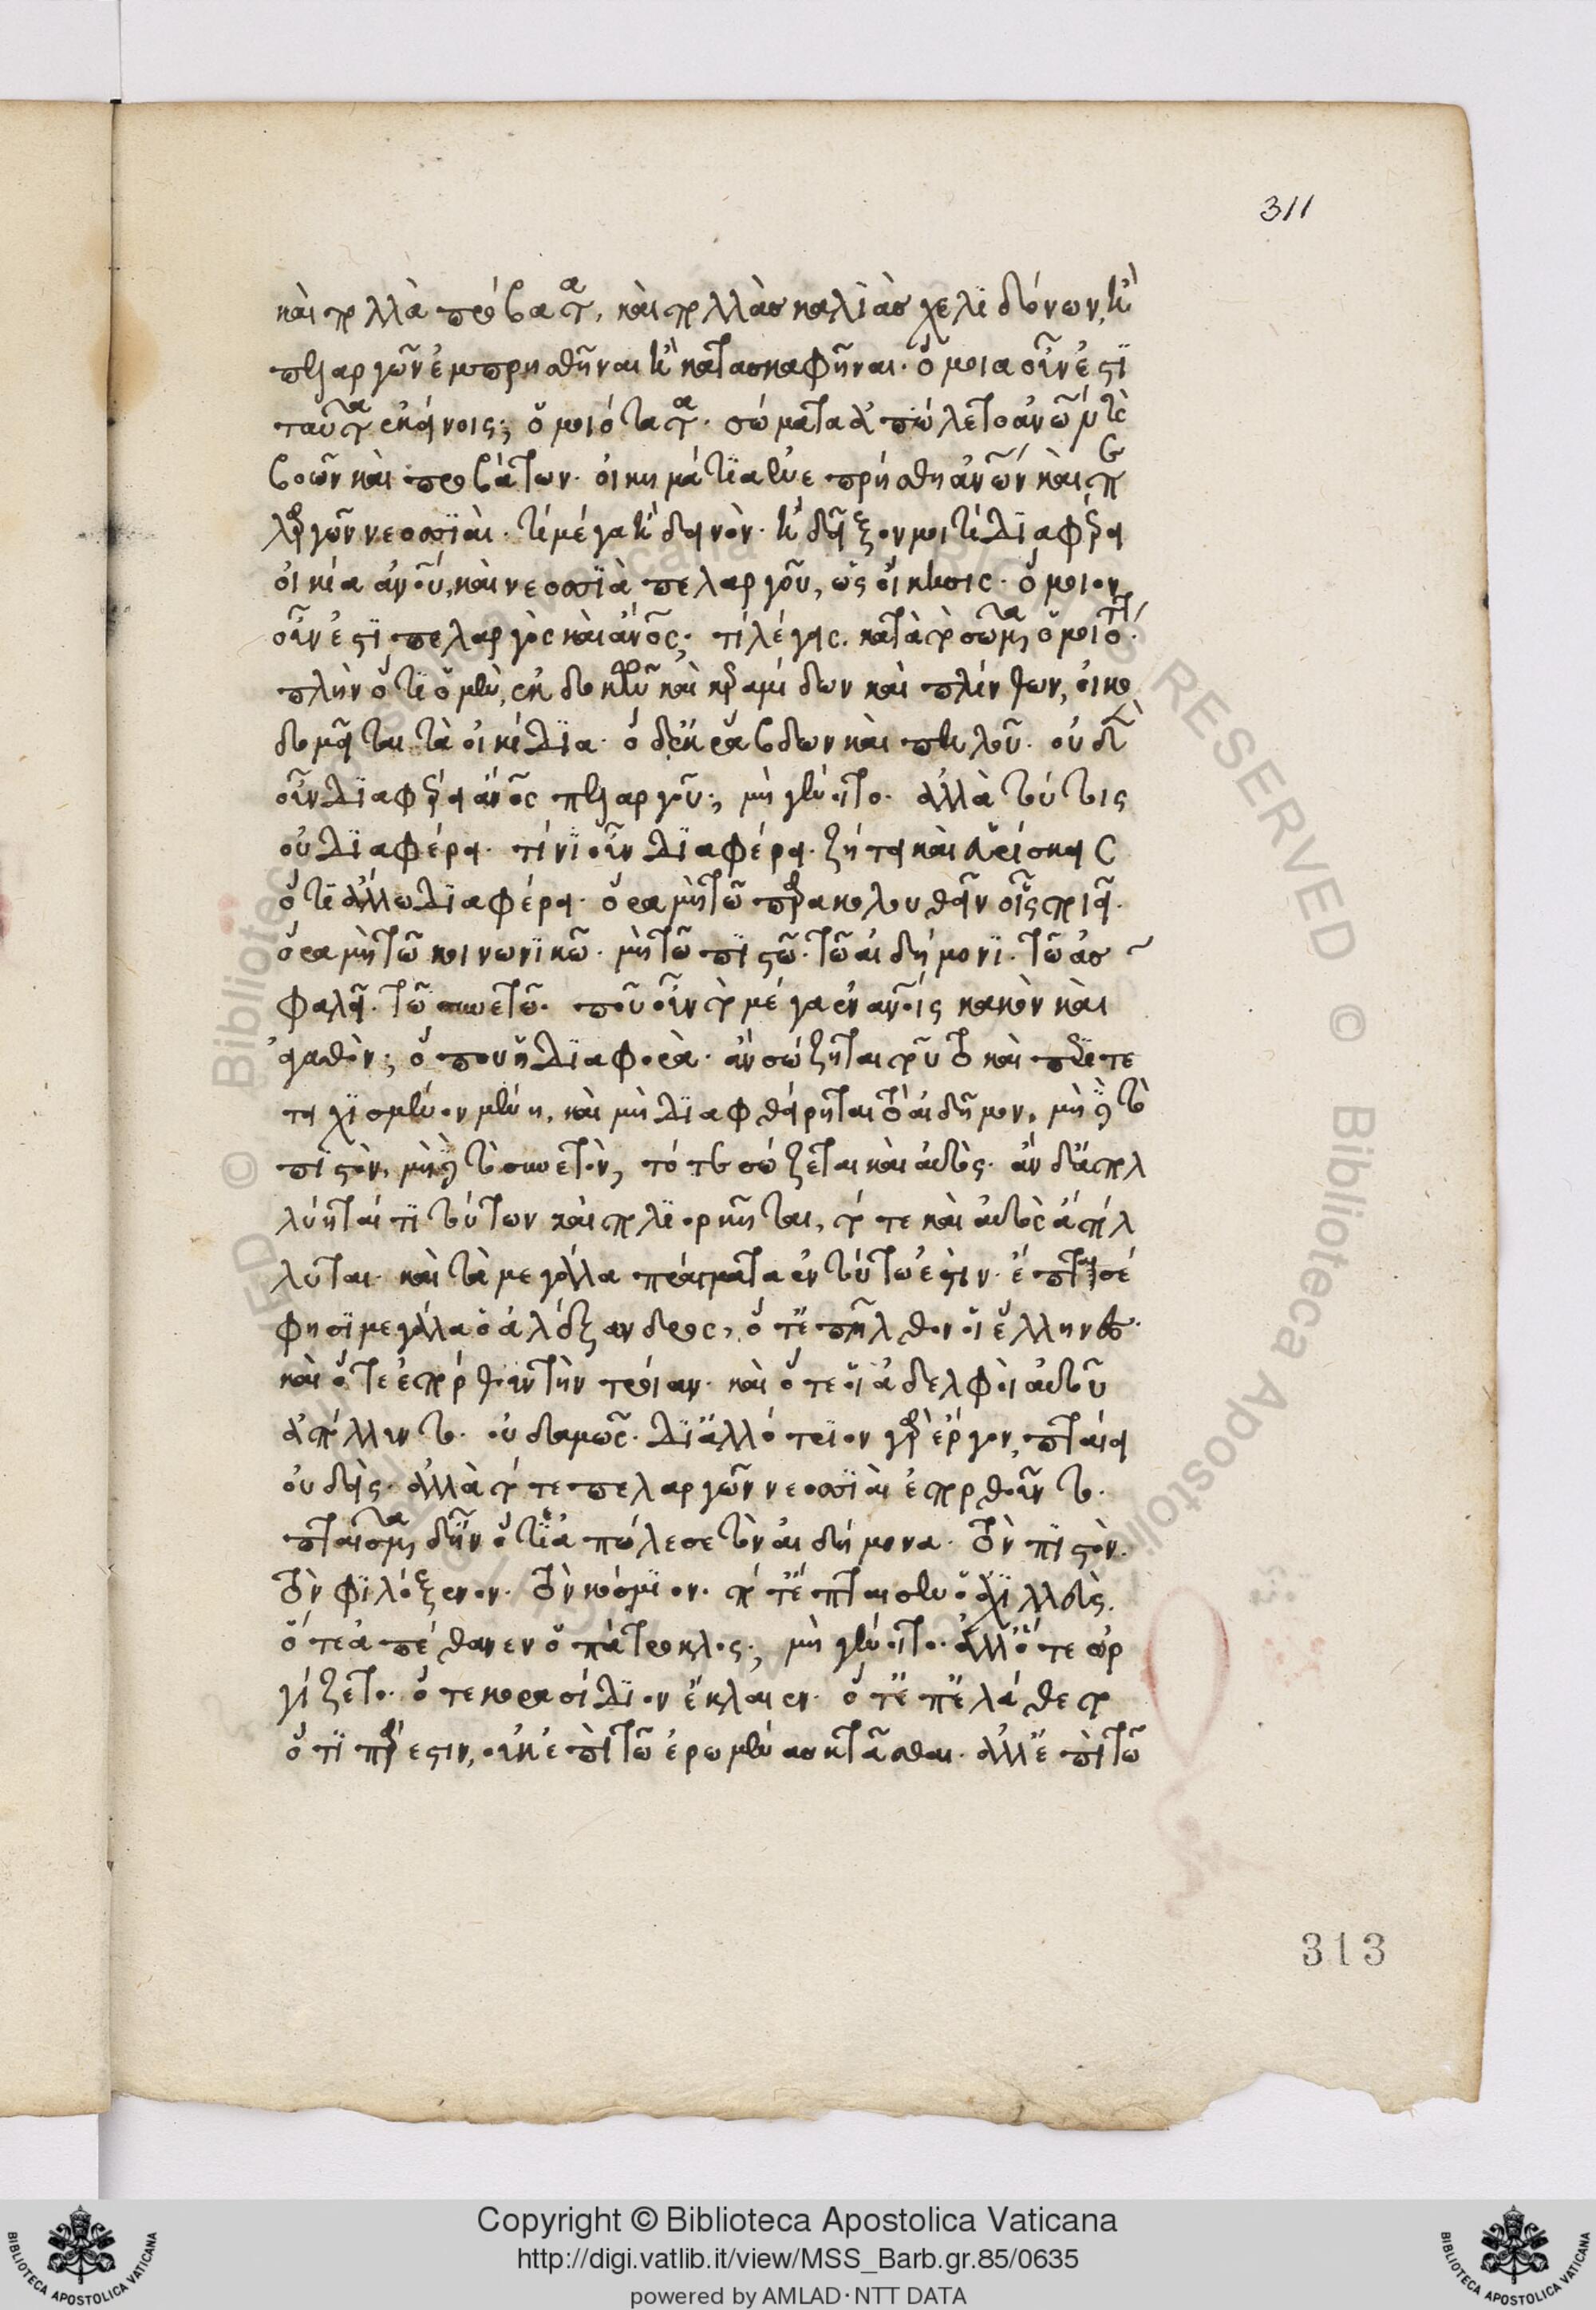 311
καὶ πολλὰ πρόβατα, καὶ πολλὰς καλιὰς χελιδόνων, καὶ
πελαργῶν ἐμπρησθῆναι καὶ κατασκαφῆναι. ὅμοια οὖν ἐστὶ
ταῦτα ἐκείνοις; ὁμοιότατα. σώματα ἀπώλετο ἀνῶν τὲ
βοῶν καὶ προβάτων. οἰκημάτια ἐνεπρήσθη ἀνῶν καὶ πε
λαργῶν νεοσσιαί. τί μέγα καὶ δεινὸν. καὶ δεῖξον μοι τί διαφέρει
οἰκία ἀνοῦ, καὶ νεοσσιὰ πελαργοῦ, ὡς οἴκησις. ὅμοιον
οὖν ἐστὶ πελαργὸς καὶ ἀνος; τί λέγεις. κατὰ τὸ σῶμα ὁμοιότατον.
πλὴν ὅτι ὁ μὲν, ἐκ δοκῶν καὶ κεραμίδων καὶ πλίνθων, οἰκο
δομεῖται τὰ οἰκίδια. ὁ δ' ἐκ ῥάβδων καὶ πηλοῦ. οὐδενὶ
οὖν διαφέρει ἄνος πελαργοῦ; μὴ γένοιτο. ἀλλὰ τούτοις
οὐ διαφέρει. τίνι οὖν διαφέρει. ζήτει καὶ εὑρίσκεις
ὅτι ἄλλω διαφέρει. ὅρα μὴ τῶ παρακολουθεῖν οἷς ποιεῖ.
ὅρα μὴ τῶ κοινωνικῶ. μὴ τῶ πιστῶ. τῶ αἰδήμονι. τῶ ἀσ
φαλεῖ. τῶ συνετῶ. ποῦ οὖν τὸ μέγα ἐν ἀνοις κακὸν καὶ
ἀγαθόν; ὅπου ἡ διαφορὰ. ἂν σώζηται τοῦτο καὶ περιτε
τειχισμένον μένη, καὶ μὴ διαφθείρηται τὸ αἰδῆμον, μὴ δὲ τὸ
πιστὸν, μὴ δὲ τὸ συνετὸν, τότε σώζεται καὶ αὐτὸς. ἂν δ' ἀπολ
λύηταί τι τούτων καὶ πολιορκῆται, τότε καὶ αὐτὸς ἀπόλ
λυται. καὶ τὰ μεγάλα πράγματα ἐν τούτω ἐστίν. ἔπταισέ
φησι μεγάλα ὁ ἀλέξανδρος, ὅτ' ἐπῆλθον οἱ ἕλληνες.
καὶ ὅτε ἐπόρθουν τὴν τροίαν. καὶ ὅτε οἱ ἀδελφοὶ αὐτοῦ
ἀπώλλυντο. οὐδαμῶς. δι' ἀλλότριον γὰρ ἔργον, πταίει
οὐδείς. ἀλλὰ τότε πελαργῶν νεοσσιαὶ ἐπορθοῦντο.
πταῖσμα δ' ἦν ὅτι ἀπώλεσε τὸν αἰδήμονα. τὸν πιστὸν.
τὸν φιλόξενον. τὸν κόσμιον. πότ' ἔπταισεν ὁ ἀχιλλεὺς.
ὅτε ἀπέθανεν ὁ πάτροκλος; μὴ γένοιτο. ἀλλ' ὅτε ὠρ
γίζετο. ὅτε κορασίδιον ἔκλαιεν. ὅτ' ἐπελάθετο
ὅτι πάρεστιν, οὐκ ἐπὶ τῶ ἐρωμένας κτᾶσθαι. ἀλλ' ἐπὶ τῶ
313
Copyright © Biblioteca Apostolica Vaticana
http://digi.vatlib.it/view/MSS_Barb.gr.85/0635
powered by AMLAD·NTT DATA